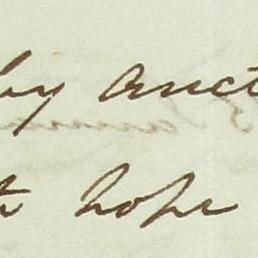 by auct
hope